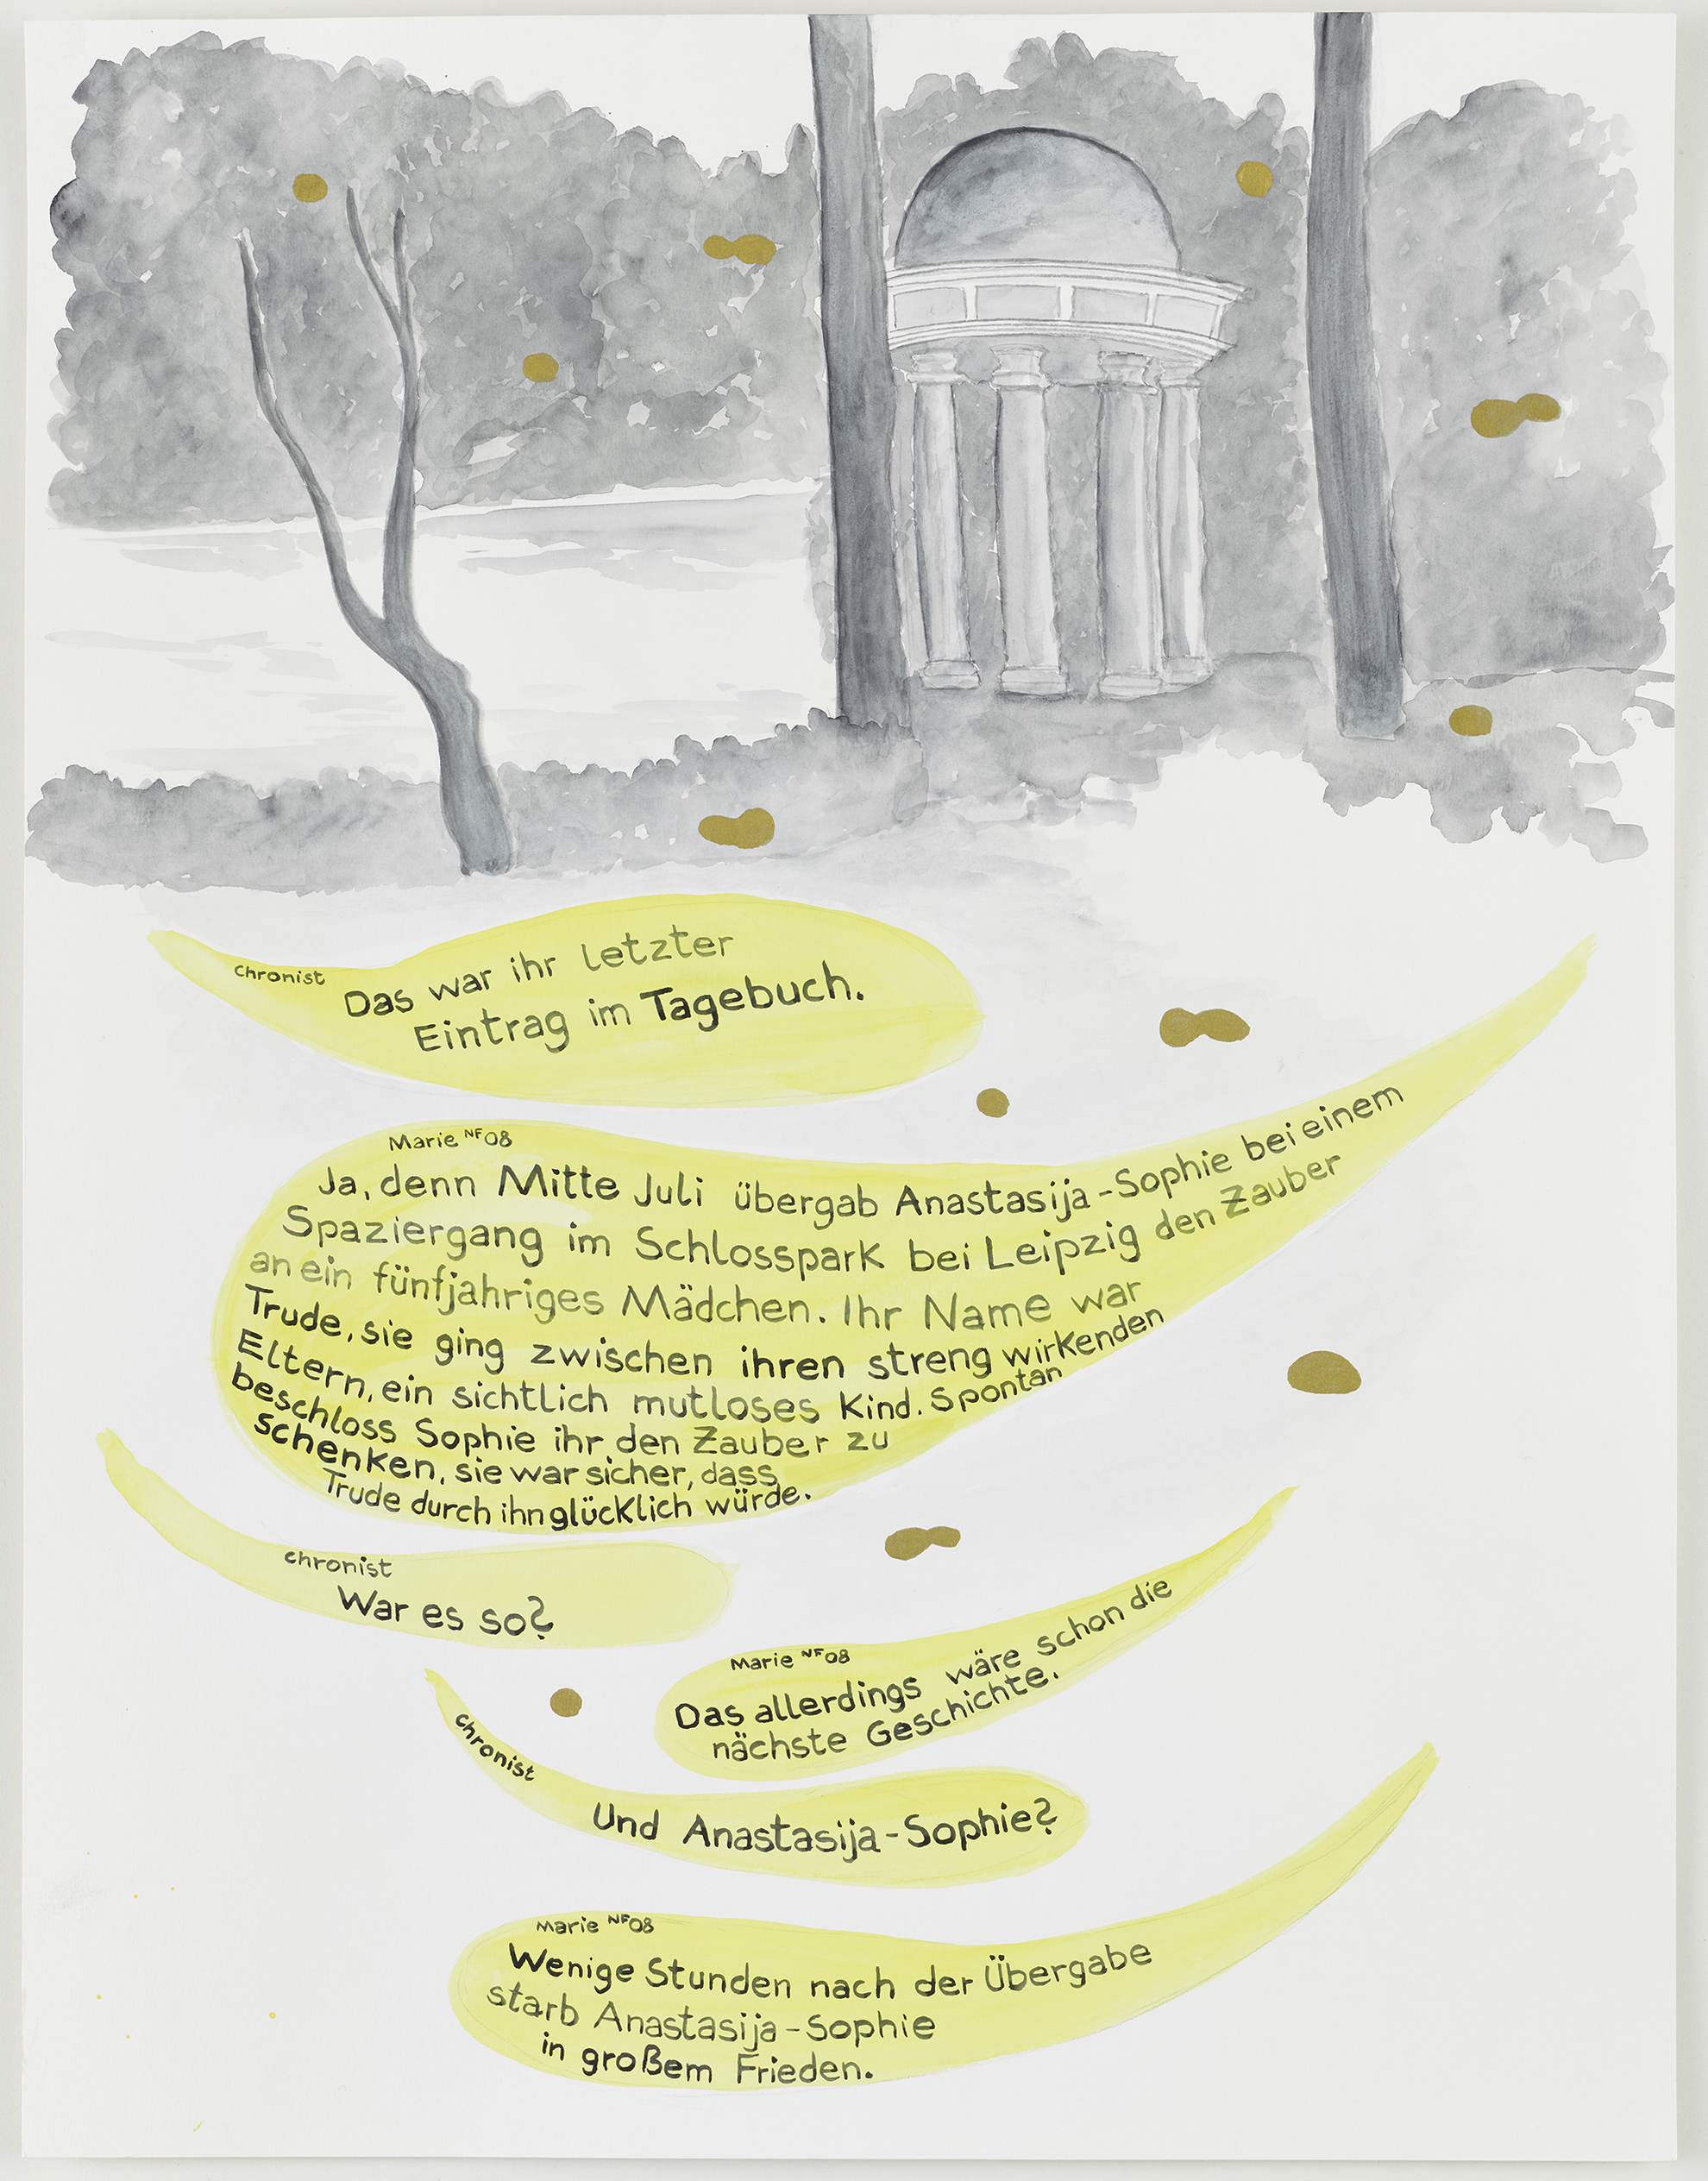 chronist
Das war ihr letzter
Eintrag im Tagebuch.
Marie NF08
Ja, denn Mitte Juli übergab Anastasija-Sophie bei einem
Spaziergang im Schlosspark bei Leipzig den Zauber
an ein fünfjähriges Mädchen. Ihr Name war
Trude, sie ging zwischen ihren streng wirkenden
Eltern, ein sichtlich mutloses Kind. Spontan
beschloss Sophie ihr den Zauber zu
schenken, sie war sicher, dass
Trude durch ihn glücklich würde.
chronist
War es so?
Marie NF08
Das allerdings wäre schon die
nächste Geschichte.
chronist
Und Anastasija-Sophie?
Marie NF08
Wenige Stunden nach der Übergabe
starb Anastasija-Sophie
in großem Frieden.